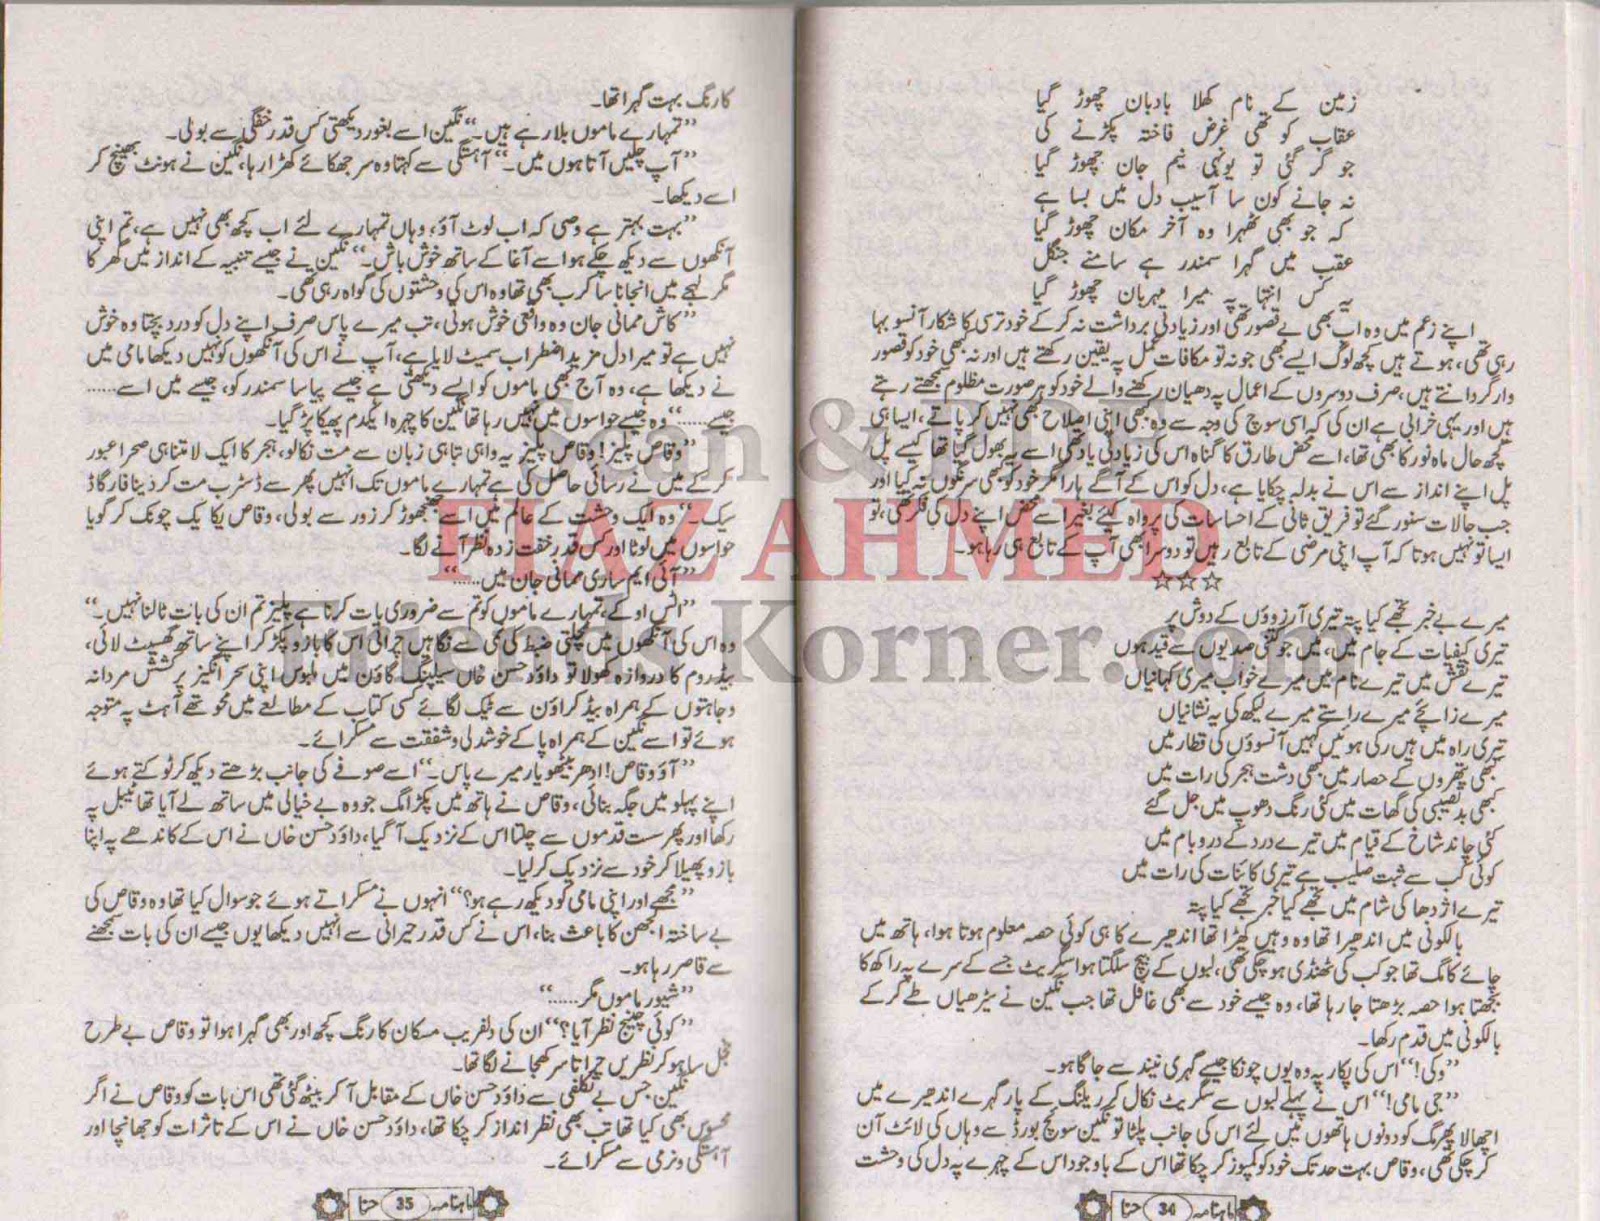 زمین کے نام کھلا بادبان چھوڑ گیا
عقاب کو تھی غرض فاختہ پکڑنے کی
جو گر گئی تو یونہی نیم جان چھوڑ گیا
نہ جانے کون سا آسیب دل میں بسا ہے
کہ جو بھی ٹھہرا وہ آخر مکان چھوڑ گیا
عقب میں گہرا سمندر ہے سامنے جنگل
یہ کس انتہا پہ میرا مہربان چھوڑ گیا
اپنے زعم میں وہ اب بھی بے قصور تھی اور زیادتی برداشت نہ کر کے خود ترسی کا شکار آنسو بہا
رہی تھی، ہوتے ہیں کچھ لوگ ایسے بھی جو نہ تو مکافات عمل پہ یقین رکھتے ہیں اور نہ بھی خود کو قصور
وار گردانتے ہیں، صرف دوسروں کے اعمال پہ دھیان رکھنے والے خود کو ہر صورت مظلوم سمجھتے رہتے
ہیں اور یہی خرابی ہے ان کی کہ اسی سوچ کی وجہ سے وہ بھی اپنی اصلاح بھی نہیں کر پاتے، ایسا ہی
کچھ حال ماہ نور کا بھی تھا، اسے محض طارق کا گناہ اس کی زیادتی یاد تھی اسے یہ بھول گیا تھا کیسے پل
پل اپنے انداز سے اس نے بدلہ چکایا ہے، دل کو اس کے آگے ہارا مگر خود کو بھی سرنگوں نہ کیا اور
جب حالات سنور گئے تو فریق ثانی کے احساسات کی پرواہ کیے بغیر اسے محض اپنے دل کی فکر تھی، تو
ایسا تو نہیں ہوتا کہ آپ اپنی مرضی کے تابع رہیں تو دوسرا بھی آپ کے تابع ہی رہا ہو۔
☆☆☆
میرے بے خبر تجھے کیا پتہ تیری آرزوؤں کے دوش پر
تیری کیفیات کے جام میں، میں جو کتنی صدیوں سے قید ہوں
تیرے نقش میں تیرے نام میں میرے خواب میری کہانیاں
میرے زائچے میرے راستے میرے لیکھ کی یہ نشانیاں
تیری راہ میں ہیں رکی ہوئیں کہیں آنسوؤں کی قطار میں
کبھی پتھروں کے حصار میں کبھی دشت ہجر کی رات میں
کبھی بدنصیبی کی گھات میں کئی رنگ دھوپ میں جل گئے
کئی چاند شاخ کے قیام میں تیرے درد کے دروبام میں
کوئی کب سے ثبت صلیب ہے تیری کائنات کی رات میں
تیرے اژدھا کی شام میں تجھے کیا خبر تجھے کیا پتہ
بالکونی میں اندھیرا تھا وہ وہیں کھڑا تھا اندھیرے کا ہی کوئی حصہ معلوم ہوتا ہوا، ہاتھ میں
چائے کا مگ تھا جو کب کی ٹھنڈی ہو چکی تھی، لبوں کے بیچ سلگتا ہوا سگریٹ جسے کے سرے پہ راکھ کا
بجھتا ہوا حصہ بڑھتا جا رہا تھا، وہ جیسے خود سے بھی غافل تھا جب نگین نے سیڑھیاں طے کر کے
بالکونی میں قدم رکھا۔
”وکی!“ اس کی پکار پہ وہ یوں چونکا جیسے گہری نیند سے جاگا ہو۔
”جی مامی!“ اس نے پہلے لبوں سے سگریٹ نکال کر ریلنگ کے پار گہرے اندھیرے میں
اچھالا پھر مگ کو دونوں ہاتھوں میں لئے اس کی جانب پلٹا تو نگین سوئچ بورڈ سے وہاں کی لائٹ آن
کر چکی تھی، وقاص بہت حد تک خود کو کمپوز کر چکا تھا اس کے باوجود اس کے چہرے پہ دل کی وحشت
ماہنامہ 34 حنا
کا رنگ بہت گہرا تھا۔
”تمہارے ماموں بلا رہے ہیں۔“ نگین اسے بغور دیکھتی کس قدر خفگی سے بولی۔
”آپ چلیں آتا ہوں میں۔“ آہستگی سے کہتا وہ سر جھکائے کھڑا رہا، نگین نے ہونٹ بھینچ کر
اسے دیکھا۔
”بہت بہتر ہے وصی کہ اب لوٹ آؤ، وہاں تمہارے لئے اب کچھ بھی نہیں ہے، تم اپنی
آنکھوں سے دیکھ چکے ہو اسے آغا کے ساتھ خوش باش۔“ نگین نے جیسے تنبیہ کے انداز میں گھر کا
مگر لہجے میں انجانا سا کرب بھی تھا وہ اس کی وحشتوں کی گواہ رہی تھی۔
”کاش ممانی جان وہ واقعی خوش ہوتی، تب میرے پاس صرف اپنے دل کو درد بچتا وہ خوش
نہیں ہے تو میرا دل مزید اضطراب سمیٹ لایا ہے، آپ نے اس کی آنکھوں کو نہیں دیکھا مامی میں
نے دیکھا ہے، وہ آج بھی ماموں کو ایسے دیکھتی ہے جیسے پیاسا سمندر کو، جیسے میں اسے......
جیسے......“ وہ جیسے حواسوں میں نہیں رہا تھا نگین کا چہرہ ایکدم پھیکا پڑ گیا۔
”وقاص پلیز! وقاص پلیز یہ واہی تباہی زبان سے مت نکالو، ہجر کا ایک لامتناہی صحرا عبور
کر کے میں نے رسائی حاصل کی ہے تمہارے ماموں تک انہیں پھر سے ڈسٹرب مت کر دینا فار گاڈ
سیک۔“ وہ ایک وحشت کے عالم میں اسے جھنجھوڑ کر زور سے بولی، وقاص یکایک چونک کر گویا
حواسوں میں لوٹا اور کس قدر خفت زدہ نظر آنے لگا۔
”آئی ایم ساری ممانی جان میں......“
”اٹس اوکے، تمہارے ماموں کو تم سے ضروری بات کرنا ہے پلیز تم ان کی بات ٹالنا نہیں۔“
وہ اس کی آنکھوں میں مچلتی ضبط کی نمی سے نگاہیں چراتی اس کا بازو پکڑ کر اپنے ساتھ گھسیٹ لائی،
بیڈ روم کا دروازہ کھولا تو داؤد حسن خاں سلیپنگ گاؤن میں ملبوس اپنی سحر انگیز پرکشش مردانہ
وجاہتوں کے ہمراہ بیڈ کراؤن سے ٹیک لگائے کسی کتاب کے مطالعے میں محو تھے آہٹ پہ متوجہ
ہوئے تو اسے نگین کے ہمراہ پا کے خوشدلی و شفقت سے مسکرائے۔
”آؤ وقاص! ادھر بیٹھو یار میرے پاس۔“ اسے صوفے کی جانب بڑھتے دیکھ کر ٹوکتے ہوئے
اپنے پہلو میں جگہ بنائی، وقاص نے ہاتھ میں پکڑا مگ جو وہ بے خیالی میں ساتھ لے آیا تھا ٹیبل پہ
رکھا اور پھر سست قدموں سے چلتا اس کے نزدیک آ گیا، داؤد حسن خاں نے اس کے کاندھے پہ اپنا
بازو پھیلا کر خود سے نزدیک کر لیا۔
”مجھے اور اپنی مامی کو دیکھ رہے ہو؟“ انہوں نے مسکراتے ہوئے جو سوال کیا تھا وہ وقاص کی
بے ساختہ الجھن کا باعث بنا، اس نے کس قدر حیرانی سے انہیں دیکھا یوں جیسے ان کی بات سمجھنے
سے قاصر رہا ہو۔
”شیور ماموں مگر......“
”کوئی چینج نظر آیا؟“ ان کی دلفریب مسکان کا رنگ کچھ اور بھی گہرا ہوا تو وقاص بے طرح
خجل سا ہو کر نظریں چراتا سر کھجانے لگا تھا۔
نگین جس بے تکلفی سے داؤد حسن خاں کے مقابل آ کر بیٹھ گئی تھی اس بات کو وقاص نے اگر
محسوس بھی کیا تھا تب بھی نظر انداز کر چکا تھا، داؤد حسن خاں نے اس کے تاثرات کو جھانچا اور
آہستگی و نرمی سے مسکرائے۔
ماہنامہ 35 حنا
Scan & PDF
FIAZ AHMED
Friends Korner.com